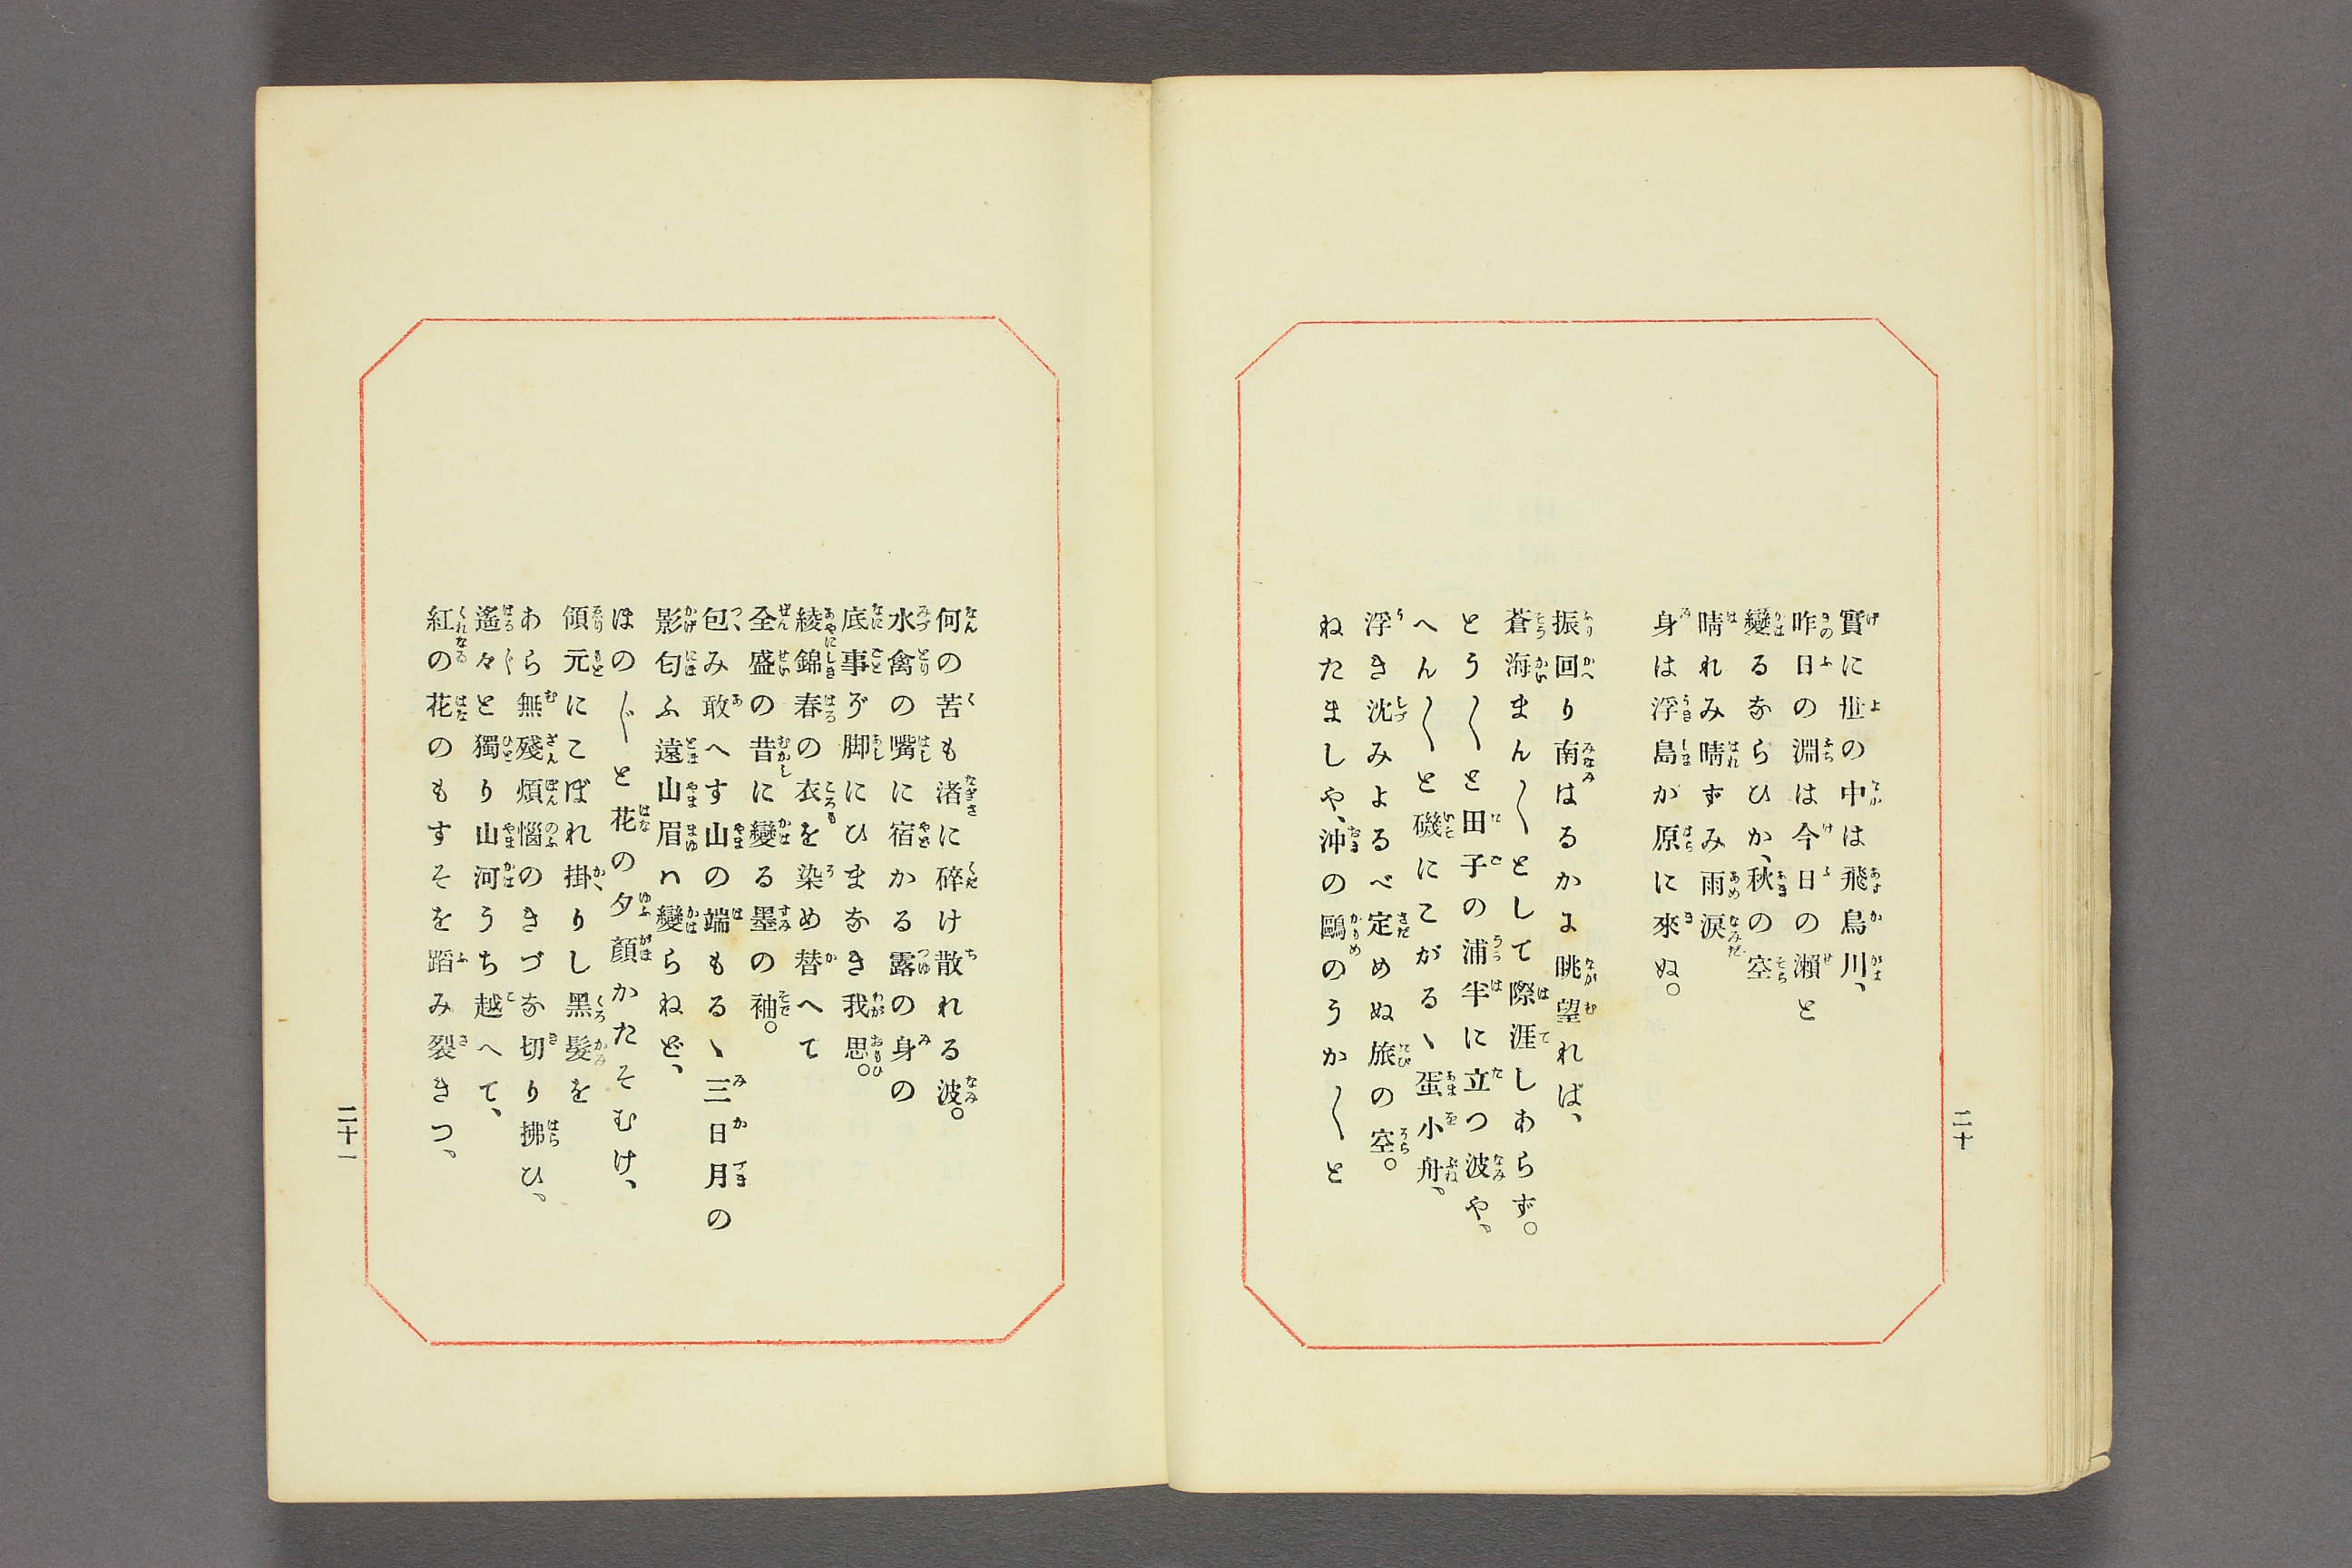 實に世の中は飛鳥川、
昨日の淵は今日の瀬と
變るならひか、秋の空
晴れみ晴ずみ雨涙
身は浮島が原に來ぬ。
振回り南はるかに眺望れば、
蒼海まん〳〵として際涯しあらず。
とう〳〵と田子の浦半に立つ波や、
へん〳〵と磯にこがるゝ蜑小舟、
浮き沈みよるべ定めぬ旅の空。
ねたましや、沖の鷗のうか〳〵と
二十
何の苦も渚に碎け散れる波。
水禽の嘴に宿かる露の身の
底事ぞ脚にひまなき我思。
綾錦春の衣を染め替へて
全盛の昔に變る墨の袖。
包み敢へす山の端もるゝ三日月の
影匂ふ遠山眉ハ變らねど、
ほの〴〵と花の夕顔かたそむけ、
領元にこぼれ掛りし黑髮を
あら無殘煩惱のきづな切り拂ひ、
遙々と獨り山河うち越へて、
紅の花のもすそを蹈み裂きつ、
二十一